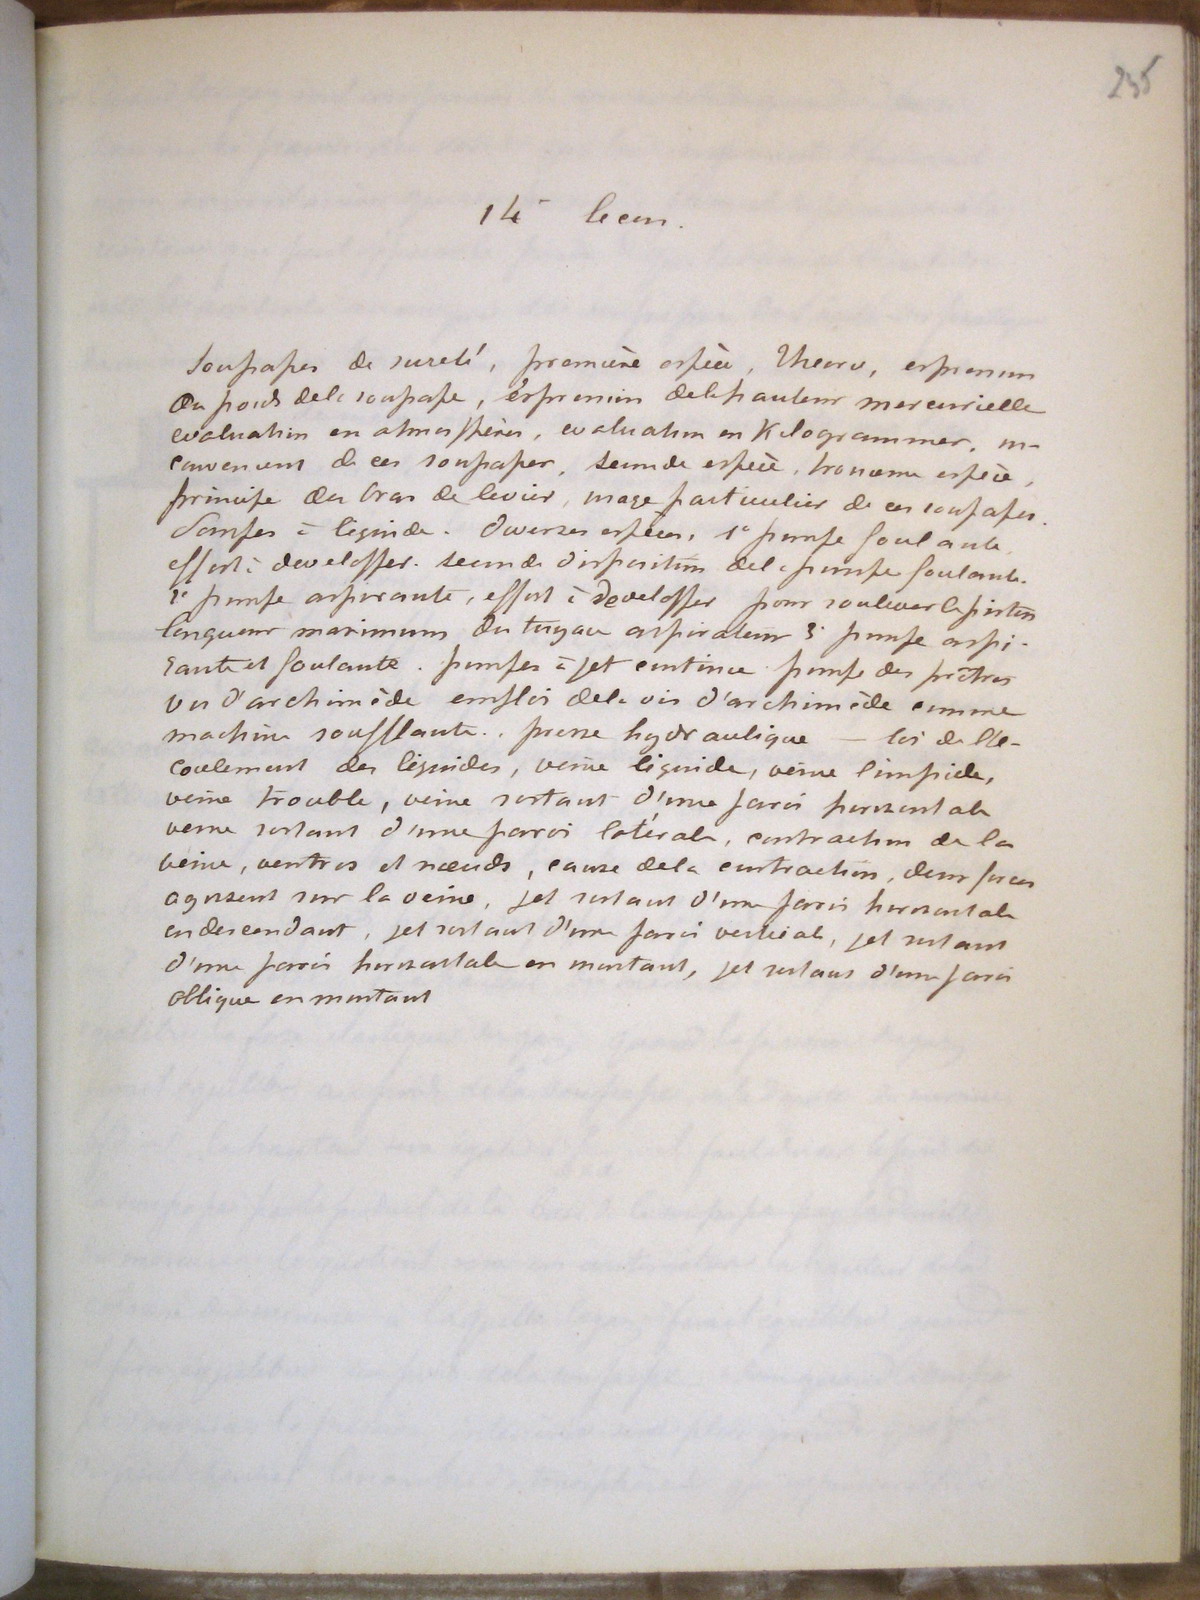 235
14e leçon.
Soupapes de sureté, première espèce, theorie, expression
du poids de la soupape, expression de la hauteur mercurielle
evaluation en atmosphères, evaluation en Kilogrammes, in-
convenient de ces soupapes, seconde espèce, troisieme espèce,
principe des bras de levier, usage particulier de ces soupapes.
Pompes à liquide. diverses espèces, 1e pompe foulante,
effort à developper. seconde disposition de la pompe foulante.
2e pompe aspirante, effort à developper pour soulever le piston
longueur maximum du tuyau aspirateur 3e pompe aspi-
rante et foulante. pompes à jet continu pompe des prêtres
vis d'archimède emploi de la vis d'archimède comme
machine soufflante. presse hydraulique — loi de l'é-
coulement des liquides, veine liquide, veine limpide,
veine trouble, veine sortant d'une paroi horizontale
veine sortant d'une paroi latérale, contraction de la
veine, ventres et nœuds, cause de la contraction, deux forces
agissent sur la veine, jet sortant d'une paroi horizontale
en descendant, jet sortant d'une paroi verticale, jet sortant
d'une paroi horizontale en montant, jet sortant d'une paroi
oblique en montant